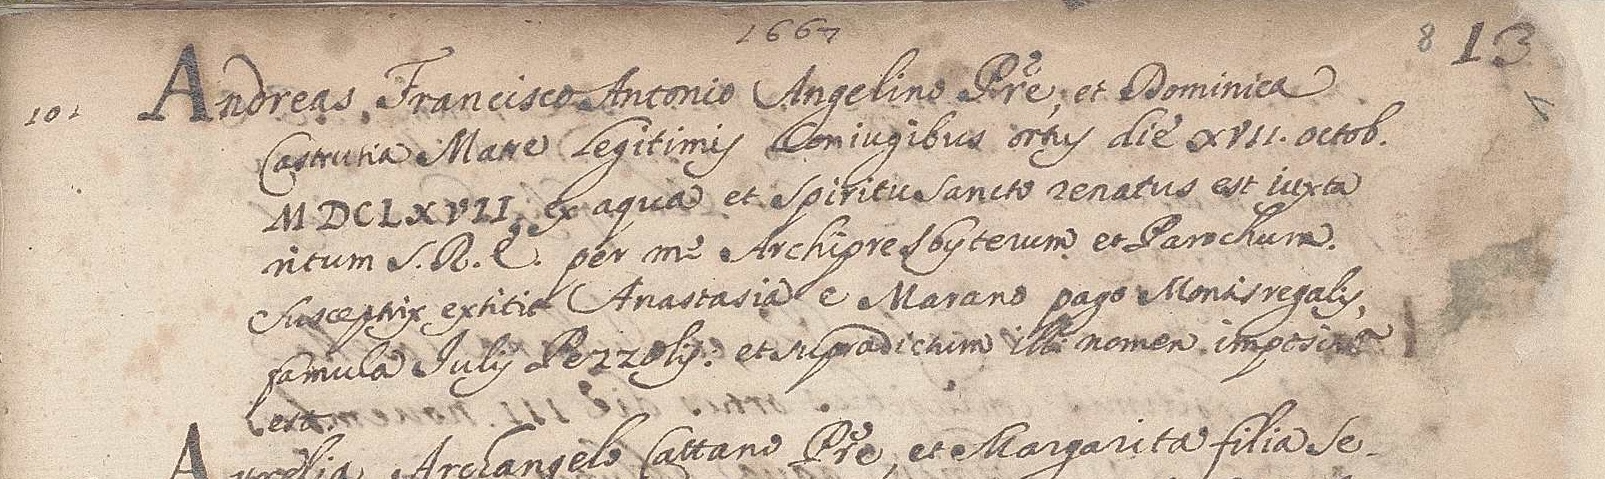 1667
8 13
101 Andreas, Francisco Antonio Angelino Pře, et Dominica
Castrutia Matre legitimis Coniugibus ortus die XVII. octob.
MDCLXVII, ex aqua et Spiritu Sancto renatus est iuxta
ritum S. R. E. per me Archipresbyterum et Parochum.
Susceptrix extitit Anastasia e Marano pago Montisregalis,
famula Julij Pezzolij: et supradictum illi nomen impositũ
est.
Aurelia Archangelo Cattano Pře, et Margarita filia Se-